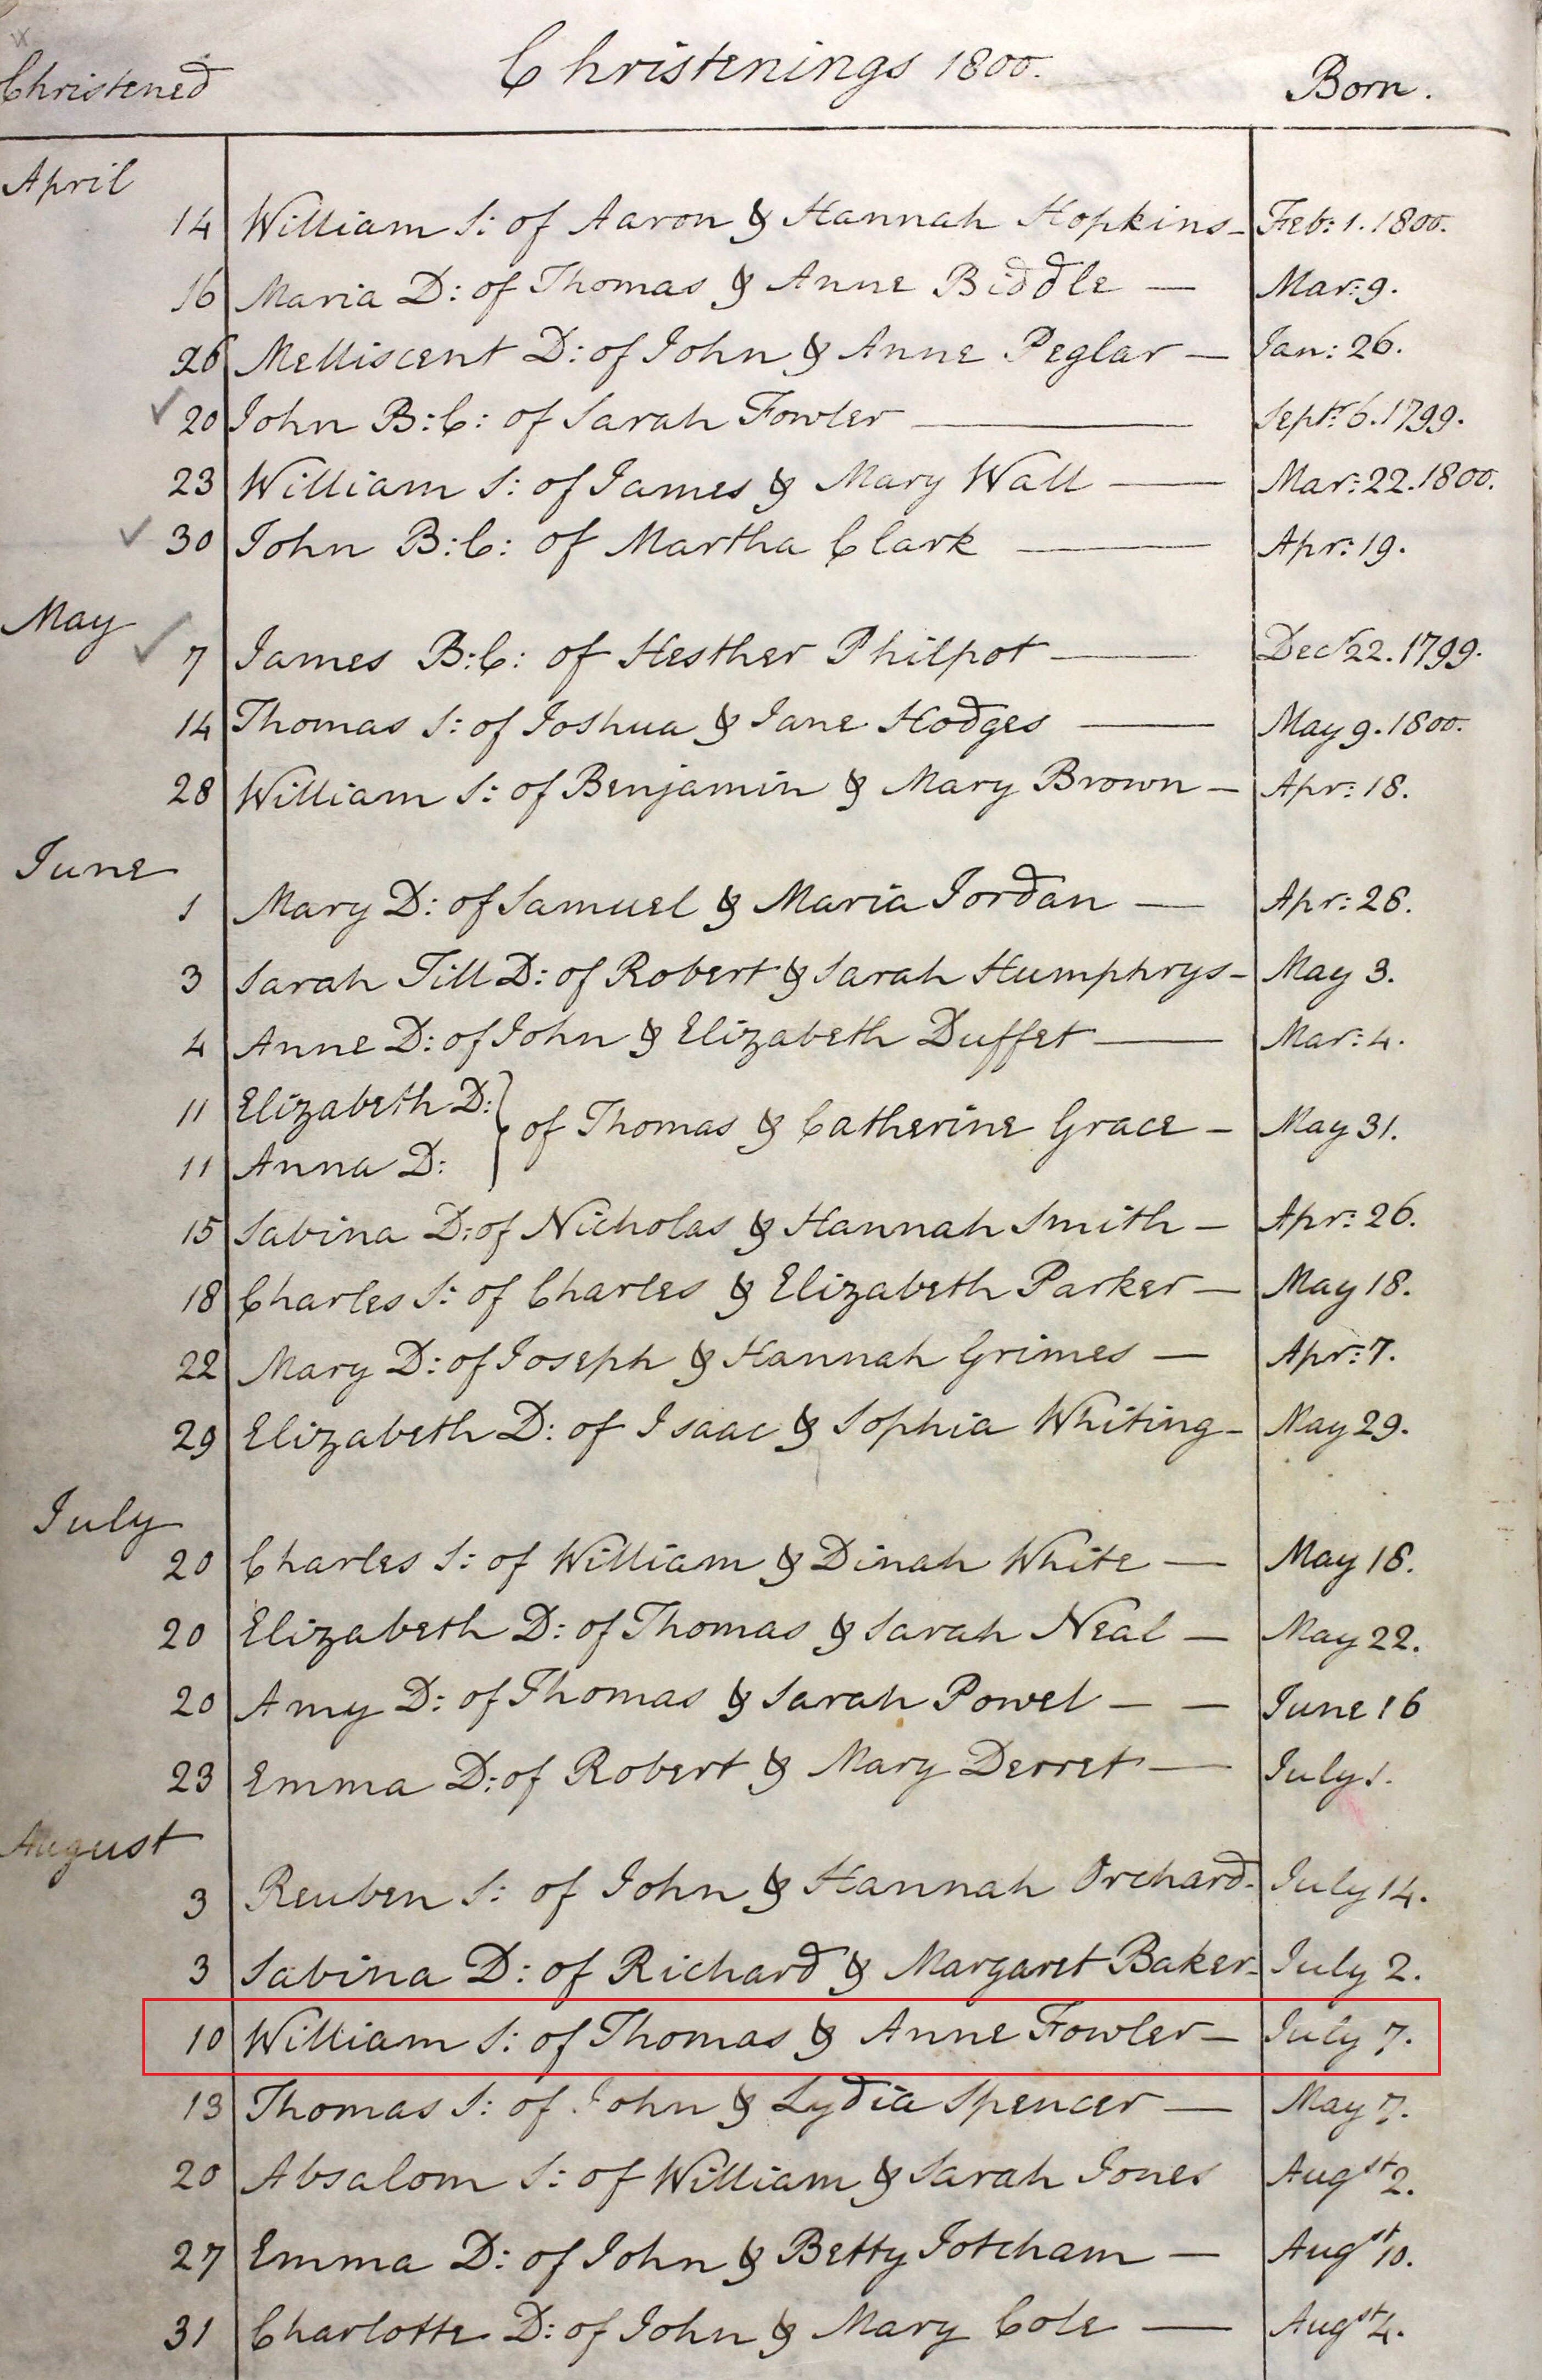 Christened Christenings 1800. Born.
April
14 William S: of Aaron & Hannah Hopkins - Feb: 1. 1800.
16 Maria D: of Thomas & Anne Biddle — Mar: 9.
26 Melliscent D: of John & Anne Peglar — Jan: 26.
20 John B:C: of Sarah Fowler — Sept: 6. 1799.
23 William S: of James & Mary Wall — Mar: 22. 1800.
30 John B:C: of Martha Clark — Apr: 19.
May
7 James B:C: of Hesther Philpot — Decr 22. 1799.
14 Thomas S: of Joshua & Jane Hodges — May 9. 1800.
28 William S: of Benjamin & Mary Brown — Apr: 18.
June
1 Mary D: of Samuel & Maria Jordan — Apr: 28.
3 Sarah Till D: of Robert & Sarah Humphrys - May 3.
4 Anne D: of John & Elizabeth Duffet — Mar: 4.
11 Elizabeth D:
of Thomas & Catherine Grace — May 31.
11 Anna D:
15 Sabina D: of Nicholas & Hannah Smith — Apr: 26.
18 Charles S: of Charles & Elizabeth Parker — May 18.
22 Mary D: of Joseph & Hannah Grimes — Apr: 7.
29 Elizabeth D: of Isaac & Sophia Whiting - May 29.
July
20 Charles S: of William & Dinah White — May 18.
20 Elizabeth D: of Thomas & Sarah Neal — May 22.
20 Amy D: of Thomas & Sarah Powel — — June 16
23 Emma D: of Robert & Mary Derret — July 1.
August
3 Reuben S: of John & Hannah Orchard - July 14.
3 Sabina D: of Richard & Margaret Baker - July 2.
10 William S: of Thomas & Anne Fowler — July 7.
13 Thomas S: of John & Lydia Spencer — May 7.
20 Absalom S: of William & Sarah Jones Augst 2.
27 Emma D: of John & Betty Jotcham — Augst 10.
31 Charlotte D: of John & Mary Cole — Augst 4.